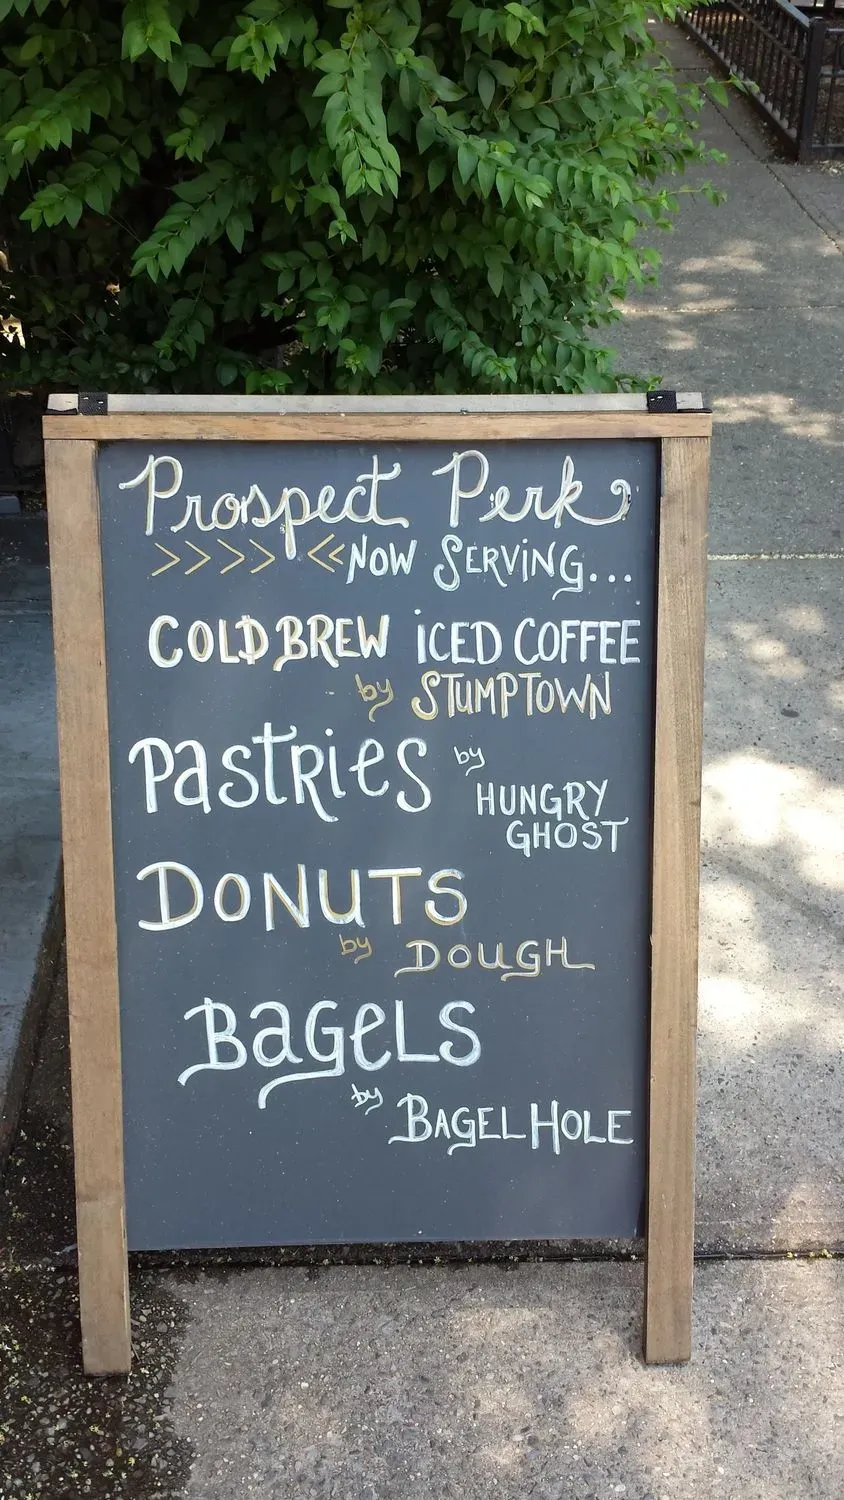 Prospect Perk
>>>> << NOW SERVING...
COLD BREW iCED COFFEE
by STUMPTOWN
PaSTRieS by
HUNGRY
GHOST
DONUTS
by DOUGH
BageLS
by BAGEL HOLE